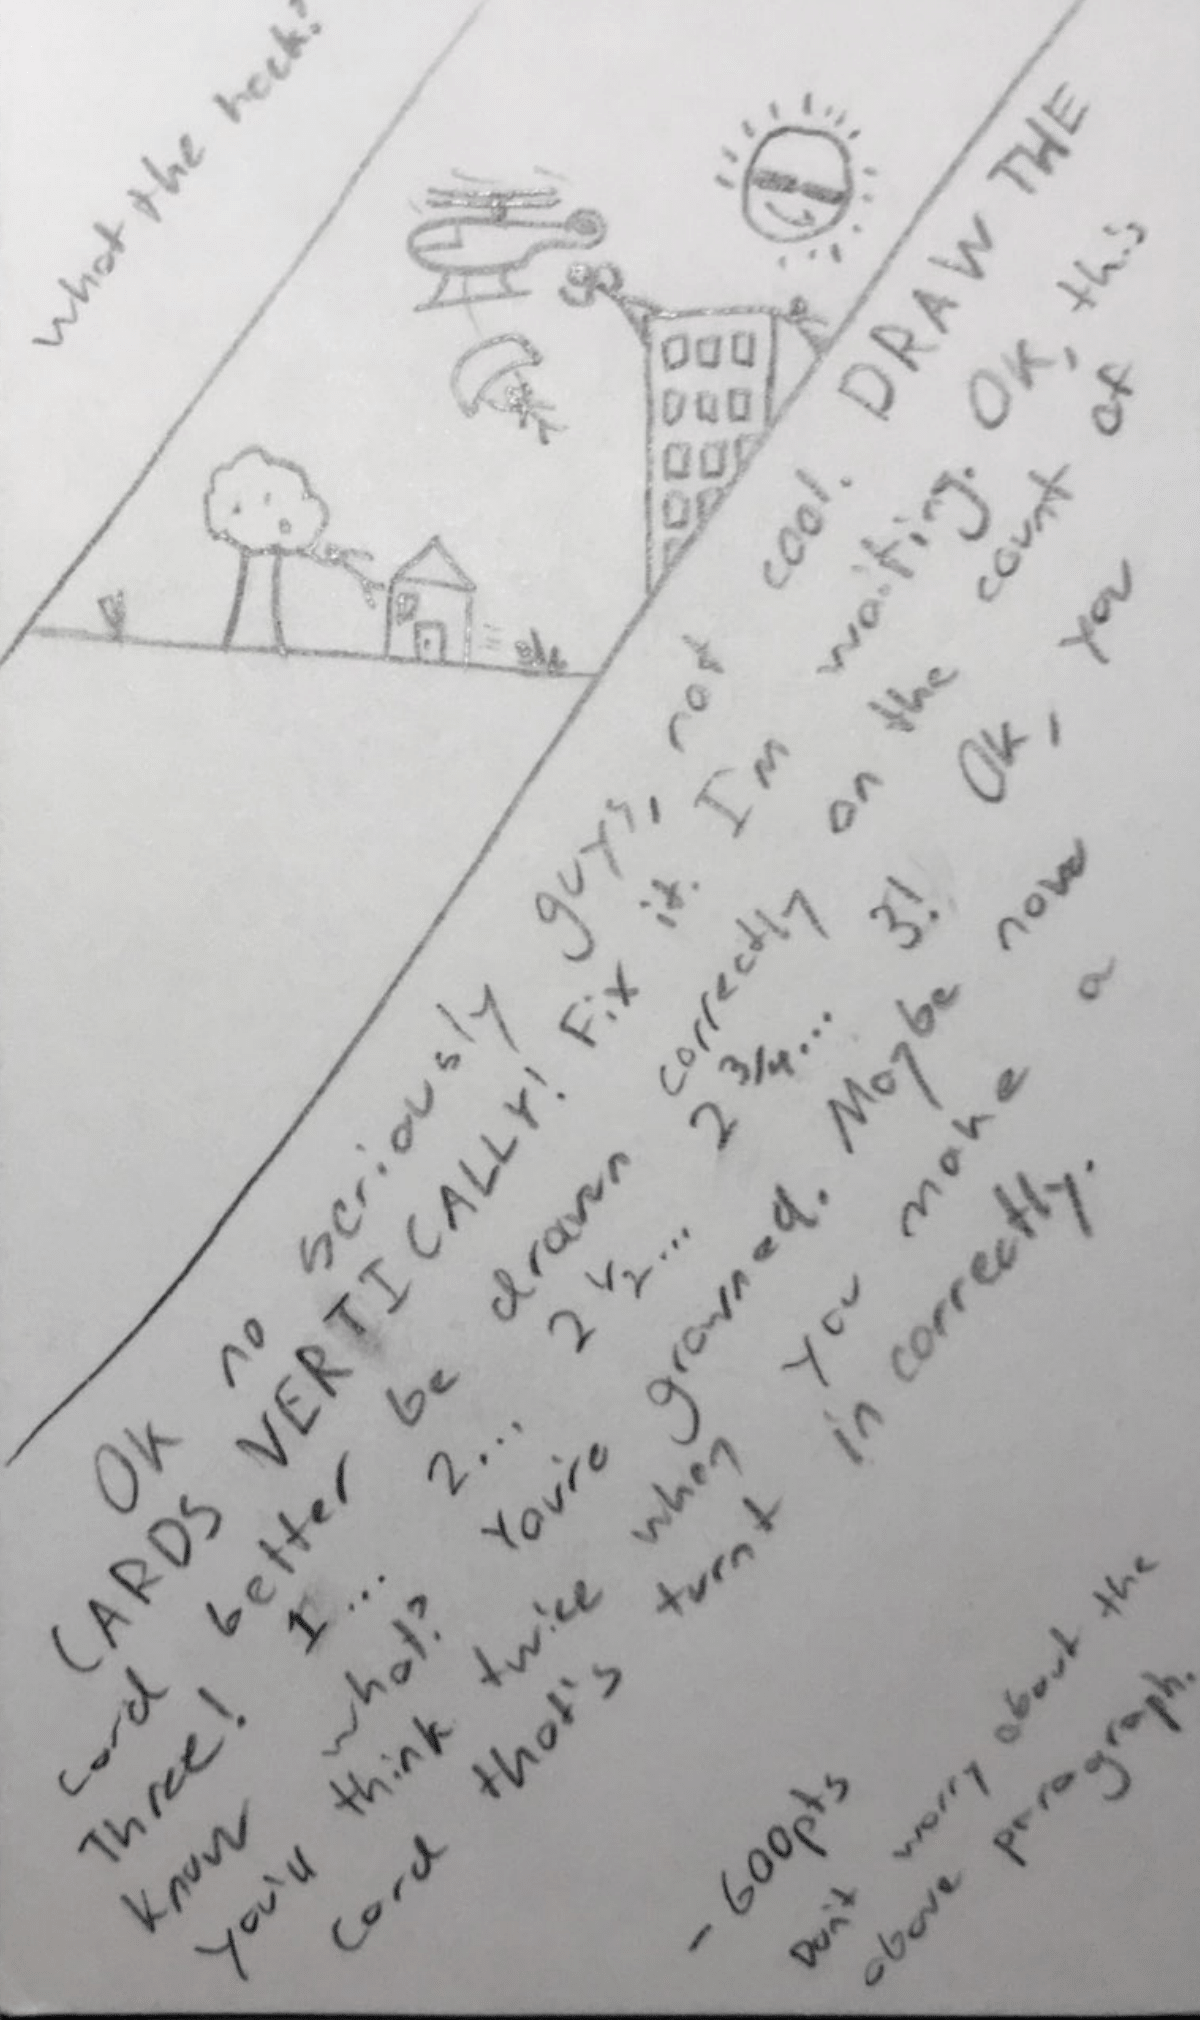 What the heck?
OK no seriously guys, not cool. DRAW THE
CARDS VERTICALLY! Fix it. I'm waiting. OK, this
card better be drawn correctly on the count of
Three! 1... 2... 2 1/2... 2 3/4... 3! OK, you
know what? You're grouned. Maybe now
you'll think twice when you make a
card that's turnt in correctly.
-600pts
Don't worry about the
above paragraph.